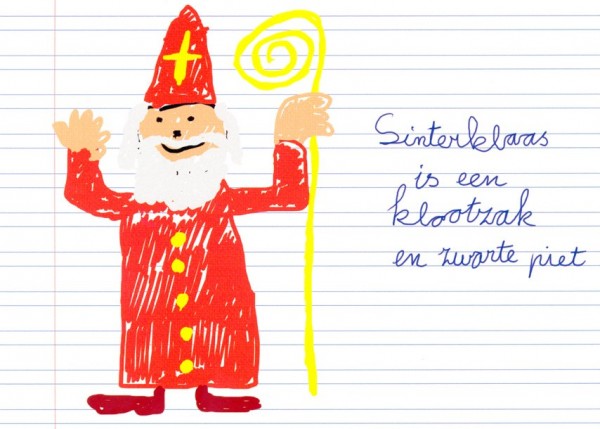 Sinterklaas
is een
klootzak
en zwarte piet